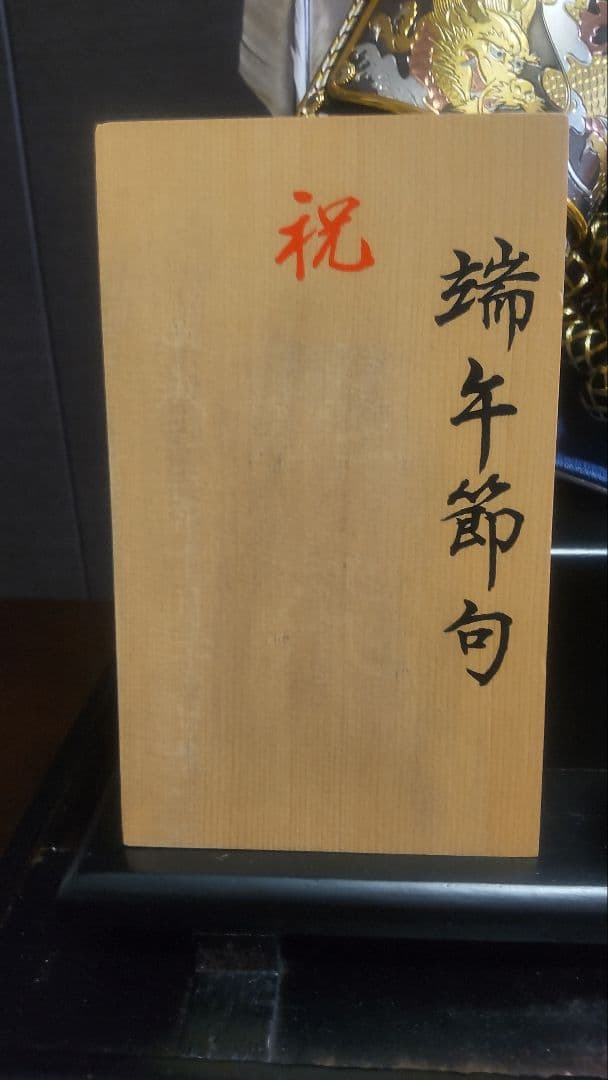 端午節句
祝